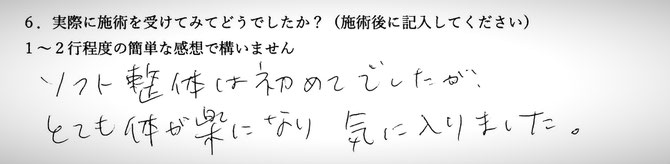 ６．実際に施術を受けてみてどうでしたか？（施術後に記入してください）
１～２行程度の簡単な感想で構いません
ソフト整体は初めてでしたが、
とても体が楽になり 気に入りました。